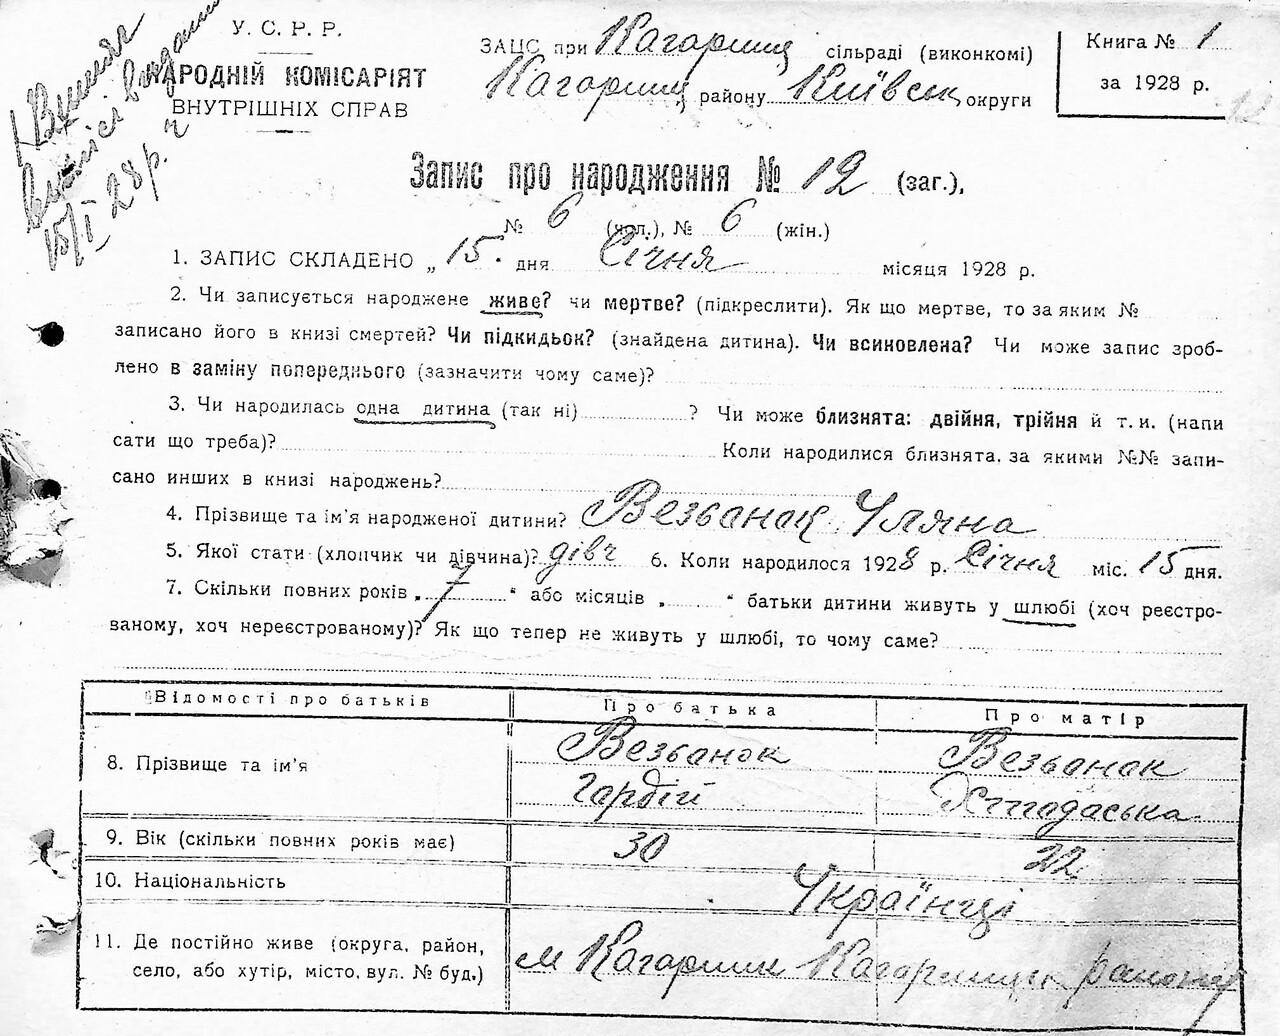 У. С. Р. Р.
НАРОДНІЙ КОМІСАРІЯТ
ВНУТРІШНІХ СПРАВ
15/I 28 р.
ЗАЦС при Кагарлиц сільраді (виконкомі)
Кагарлиц району Київськ округи
Книга № 1
за 1928 р.
Запис про народження № 12 (заг.),
№ 6 (чол.), № 6 (жін.)
1. ЗАПИС СКЛАДЕНО „ 15 " дня Січня місяця 1928 р.
2. Чи записується народжене живе? чи мертве? (підкреслити). Як що мертве, то за яким №
записано його в книзі смертей? Чи підкидьок? (знайдена дитина). Чи всиновлена? Чи може запис зроб-
лено в заміну попереднього (зазначити чому саме)?
3. Чи народилась одна дитина (так ні) ? Чи може близнята: двійня, трійня й т. и. (напи
сати що треба)? Коли народилися близнята, за якими №№ запи-
сано инших в книзі народжень?
4. Прізвище та ім'я народженої дитини? Везьанак Уляна
5. Якої стати (хлопчик чи дівчина)? дівч 6. Коли народилося 1928 р. Січня міс. 15 дня.
7. Скільки повних років „ 7 " або місяців „ " батьки дитини живуть у шлюбі (хоч реєстро-
ваному, хоч нереєстрованому)? Як що тепер не живуть у шлюбі, то чому саме?
Відомості про батьків Про батька Про матір
8. Прізвище та ім'я Везьанок Везьанак
Гардій
9. Вік (скільки повних років має) 30 22
10. Національність Українці
11. Де постійно живе (округа, район,
село, або хутір, місто, вул. № буд.) м Кагарлик Кагарлицьк району